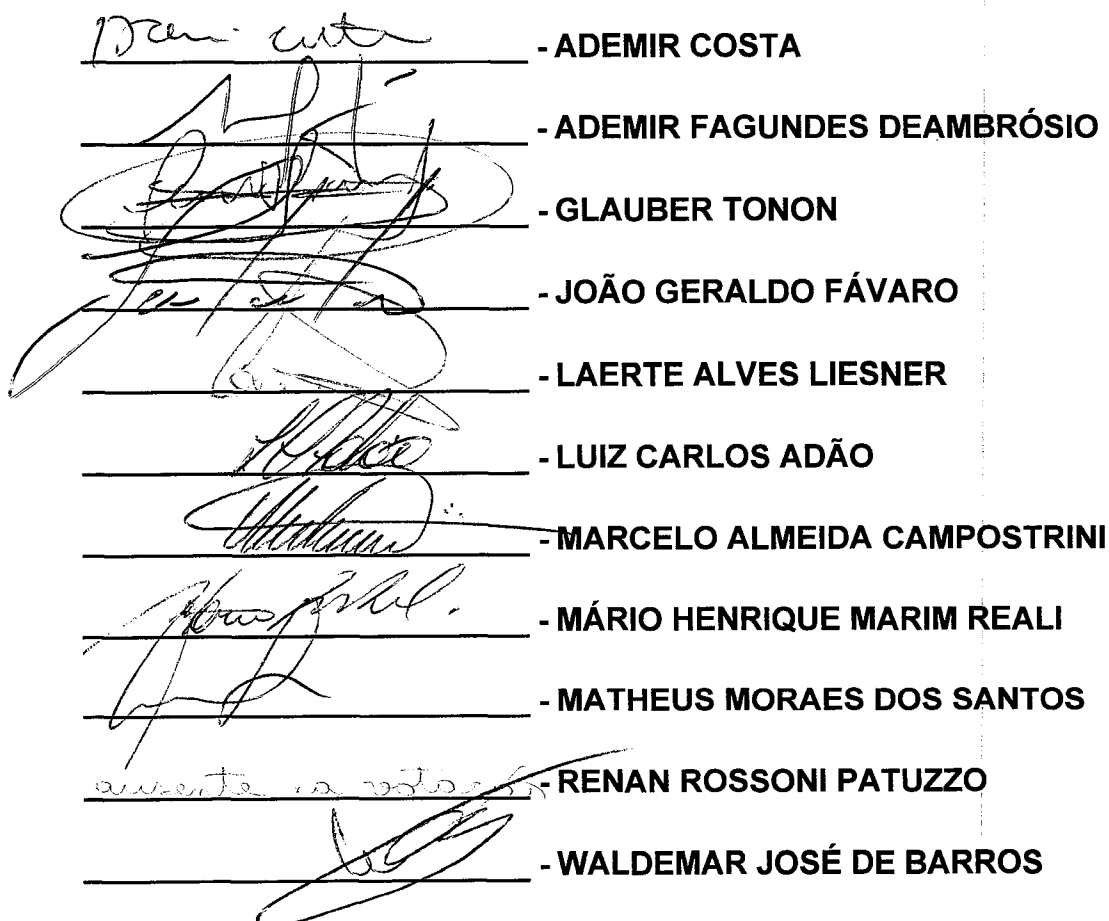 - ADEMIR COSTA
- ADEMIR FAGUNDES DEAMBRÓSIO
- GLAUBER TONON
- JOÃO GERALDO FÁVARO
- LAERTE ALVES LIESNER
- LUIZ CARLOS ADÃO
- MARCELO ALMEIDA CAMPOSTRINI
- MÁRIO HENRIQUE MARIM REALI
- MATHEUS MORAES DOS SANTOS
ausente na votação - RENAN ROSSONI PATUZZO
- WALDEMAR JOSÉ DE BARROS